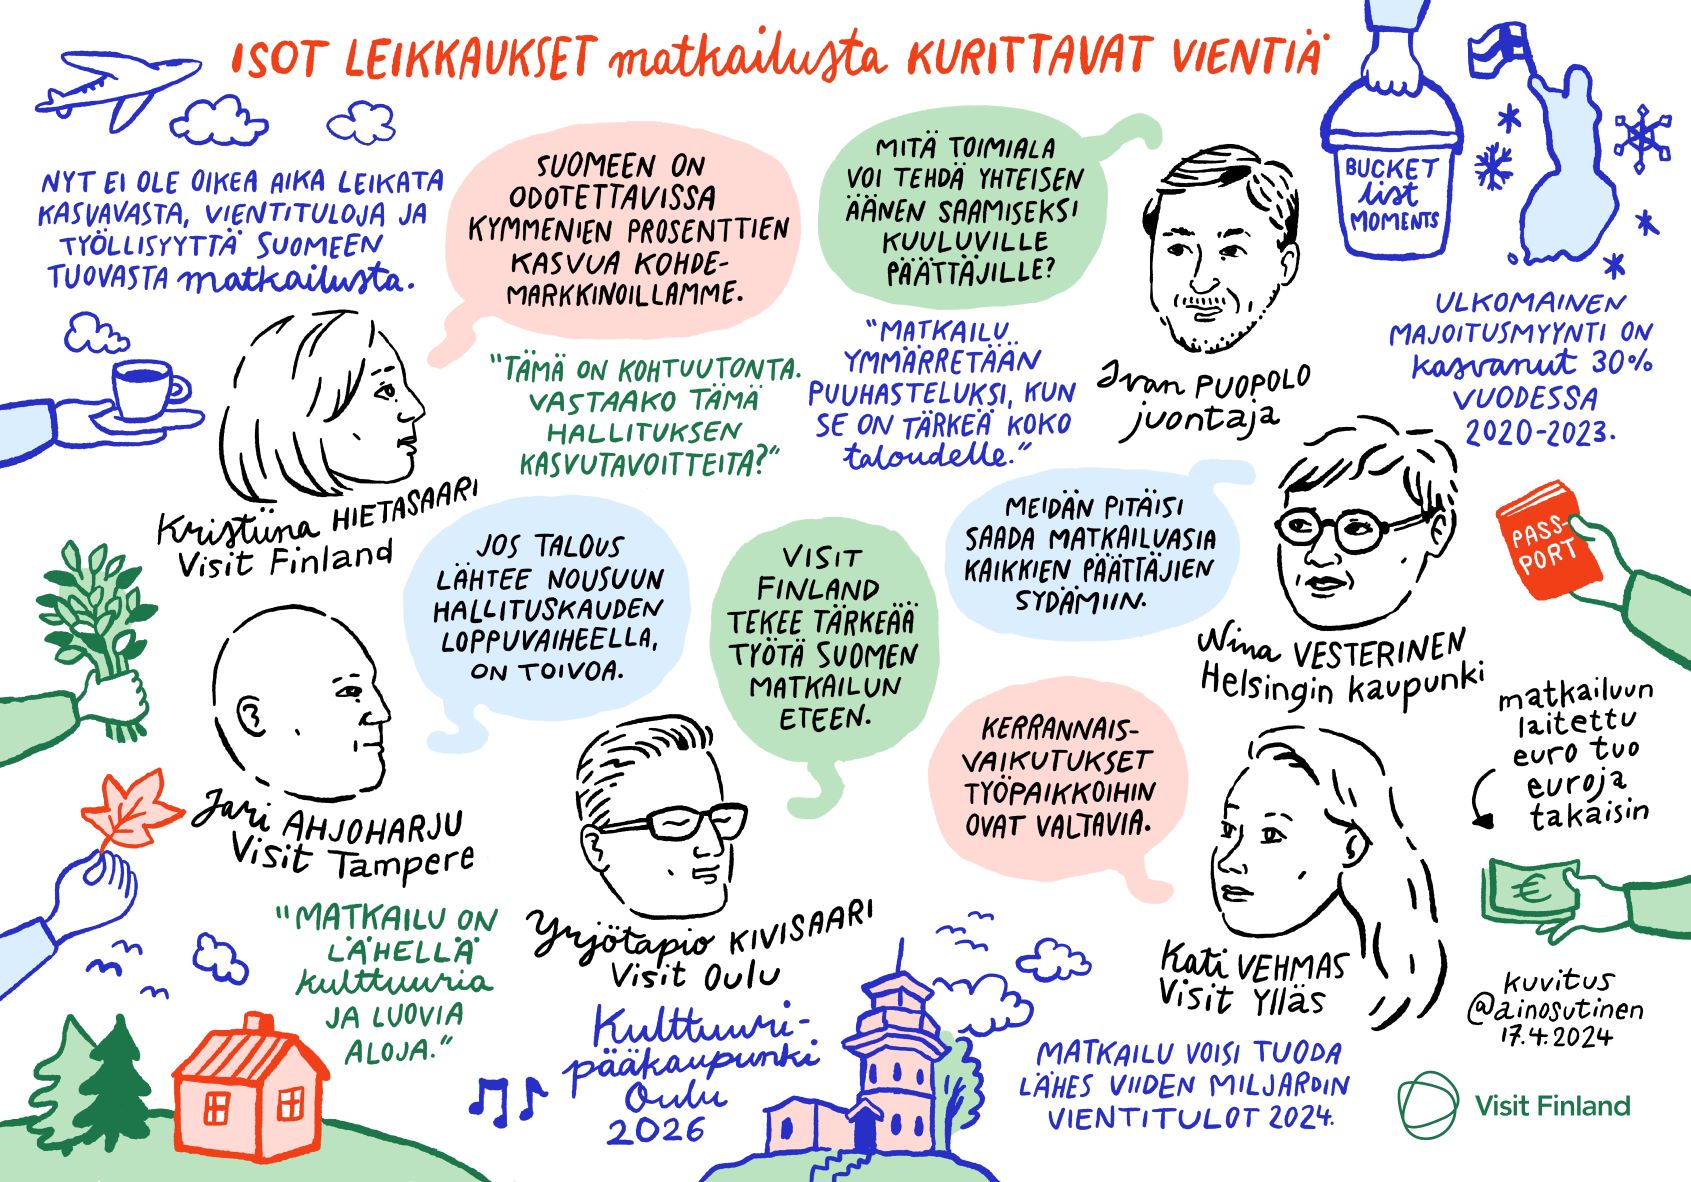 ISOT LEIKKAUKSET matkailusta KURITTAVAT VIENTIÄ
NYT EI OLE OIKEA AIKA LEIKATA
KASVAVASTA, VIENTITULOJA JA
TYÖLLISYYTTÄ SUOMEEN
TUOVASTA matkailusta.
SUOMEEN ON
ODOTETTAVISSA
KYMMENIEN PROSENTTIEN
KASVUA KOHDE-
MARKKINOILLAMME.
Kristiina HIETASAARI
Visit Finland
"TÄMÄ ON KOHTUUTONTA.
VASTAAKO TÄMÄ
HALLITUKSEN
KASVUTAVOITTEITA?"
MITÄ TOIMIALA
VOI TEHDÄ YHTEISEN
ÄÄNEN SAAMISEKSI
KUULUVILLE
PÄÄTTÄJILLE?
Ivan PUOPOLO
juontaja
"MATKAILU
YMMÄRRETÄÄN
PUUHASTELUKSI, KUN
SE ON TÄRKEÄ KOKO
taloudelle."
BUCKET
list
MOMENTS
ULKOMAINEN
MAJOITUSMYYNTI ON
kasvanut 30%
VUODESSA
2020-2023.
JOS TALOUS
LÄHTEE NOUSUUN
HALLITUSKAUDEN
LOPPUVAIHEELLA,
ON TOIVOA.
Jari AHJOHARJU
Visit Tampere
"MATKAILU ON
LÄHELLÄ
kulttuuria
JA LUOVIA
ALOJA."
VISIT
FINLAND
TEKEE TÄRKEÄÄ
TYÖTÄ SUOMEN
MATKAILUN
ETEEN.
Yrjötapio KIVISAARI
Visit Oulu
Kulttuuri-
pääkaupunki
Oulu
2026
MEIDÄN PITÄISI
SAADA MATKAILUASIA
KAIKKIEN PÄÄTTÄJIEN
SYDÄMIIN.
Nina VESTERINEN
Helsingin kaupunki
PASS-
PORT
KERRANNAIS-
VAIKUTUKSET
TYÖPAIKKOIHIN
OVAT VALTAVIA.
Kati VEHMAS
Visit Ylläs
matkailuun
laitettu
euro tuo
euroja
takaisin
€
MATKAILU VOISI TUODA
LÄHES VIIDEN MILJARDIN
VIENTITULOT 2024.
kuvitus
@ainosutinen
17.4.2024
Visit Finland